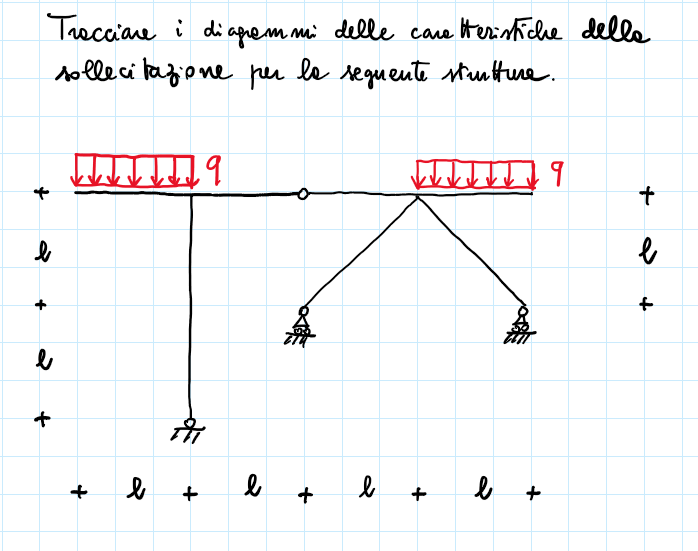 Tracciare i diagrammi delle caratteristiche della
sollecitazione per la seguente struttura.
q
q
+ +
l l
+ +
l
+
+ l + l + l + l +